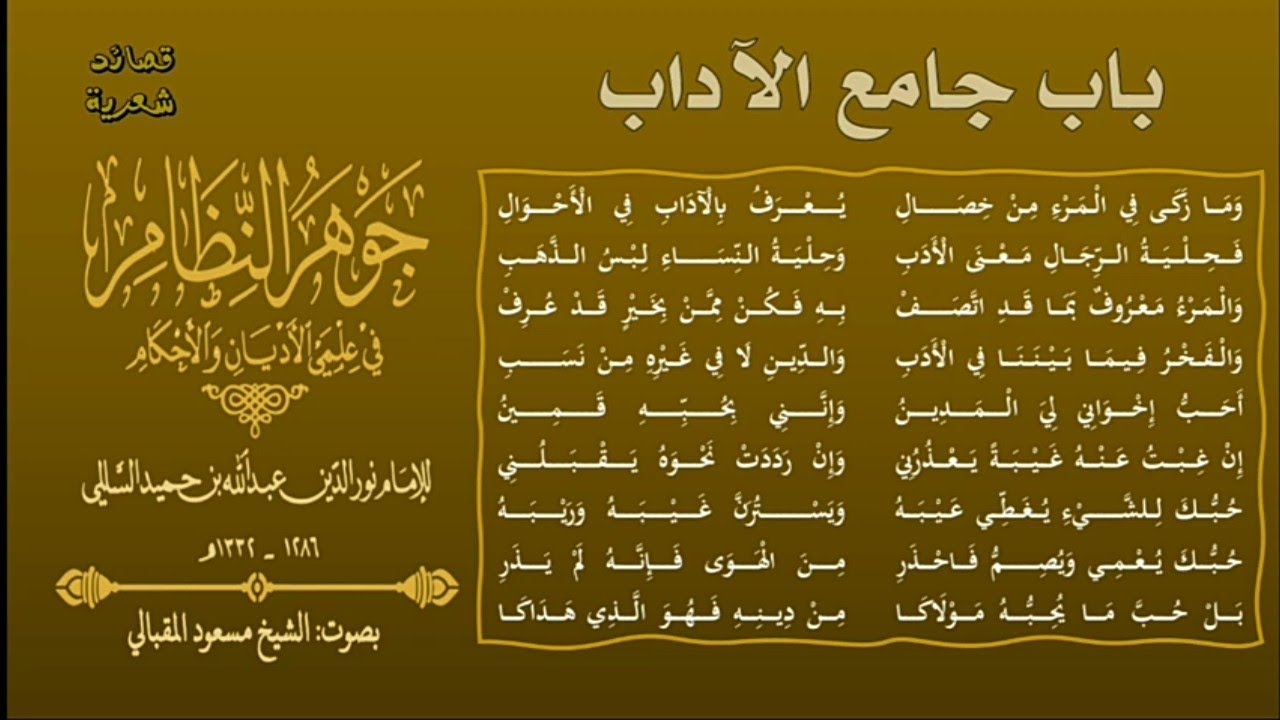 باب جامع الآداب
وَمَا زَكَى فِي الْمَرْءِ مِنْ خِصَالِ يُعْرَفُ بِالْآدَابِ فِي الْأَحْوَالِ
فَحِلْيَةُ الرِّجَالِ مَعْنَى الْأَدَبِ وَحِلْيَةُ النِّسَاءِ لِبْسُ الذَّهَبِ
وَالْمَرْءُ مَعْرُوفٌ بِمَا قَدِ اتَّصَفْ بِهِ فَكُنْ مِمَّنْ بِخَيْرٍ قَدْ عُرِفْ
وَالْفَخْرُ فِيمَا بَيْنَنَا فِي الْأَدَبِ وَالدِّينِ لَا فِي غَيْرِهِ مِنْ نَسَبِ
أَحَبُّ إِخْوَانِي لِيَ الْمَدِينُ وَإِنَّنِي بِحُبِّهِ قَمِينُ
إِنْ غِبْتُ عَنْهُ غَيْبَةً يَعْذُرُنِي وَإِنْ رَدَدَتْ نَحْوَهُ يَقْبَلُنِي
حُبُّكَ لِلشَّيْءِ يُغَطِّي عَيْبَهُ وَيَسْتُرَنَّ غَيْبَهُ وَرَيْبَهُ
حُبُّكَ يُعْمِي وَيُصِمُّ فَاحْذَرِ مِنَ الْهَوَى فَإِنَّهُ لَمْ يَذَرِ
بَلْ حُبَّ مَا يُحِبُّهُ مَوْلَاكَا مِنْ دِينِهِ فَهُوَ الَّذِي هَدَاكَا
قصائد
شعرية
جَوْهَرُ النِّظَامِ
فِي عِلْمَيِ الْأَدْيَانِ وَالْأَحْكَامِ
للإمام نور الدين عبدالله بن حميد السالمي
١٢٨٦ - ١٣٣٢هـ
بصوت: الشيخ مسعود المقبالي